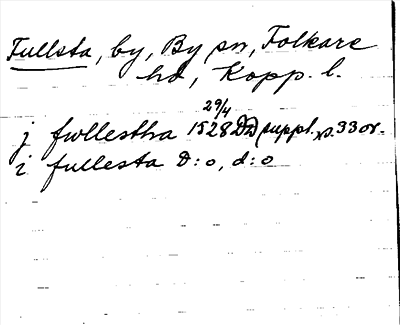 Fullsta, by, By sn, Folkare
hd, Kopp. l.
29/4
j fwllestha 1528 DD (suppl. s. 33 or.
i fullesta D:o, d:o